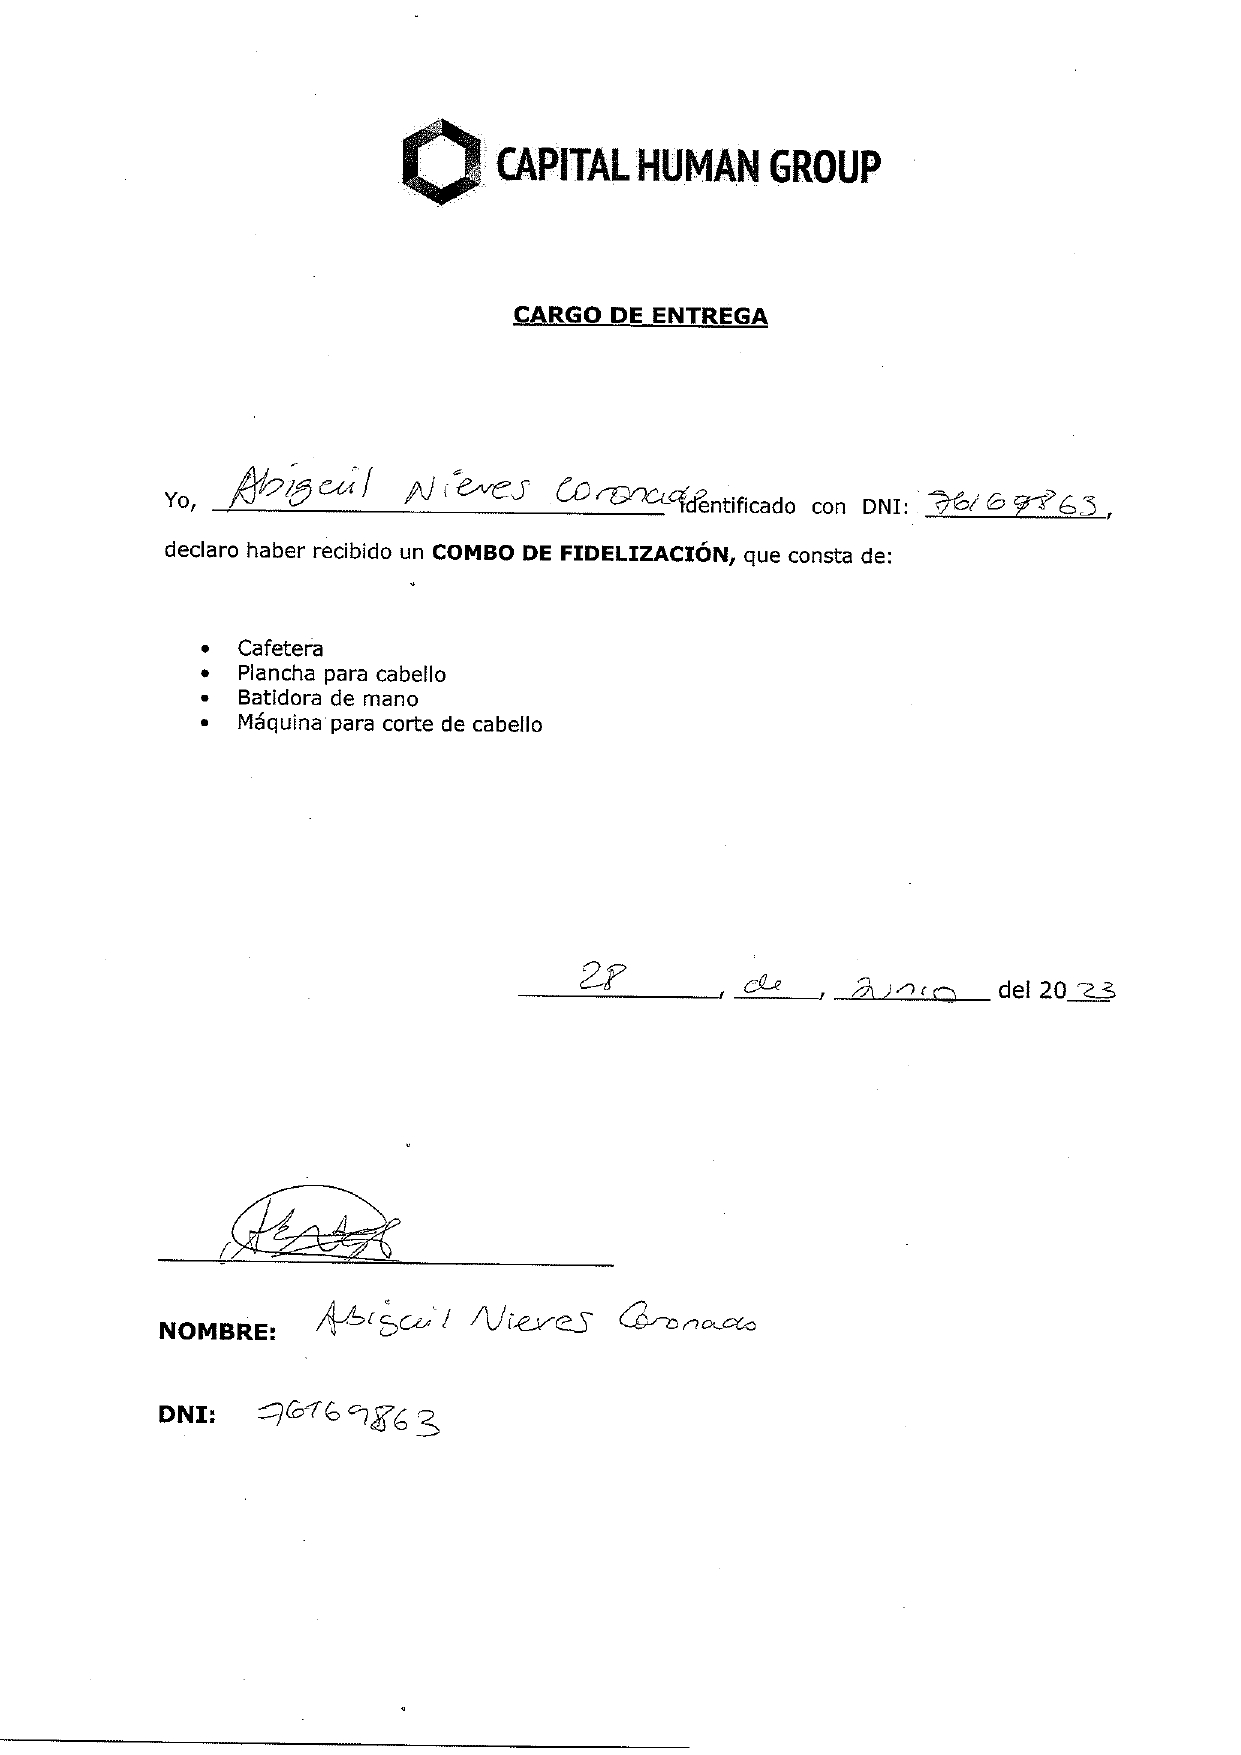 CAPITAL HUMAN GROUP
CARGO DE ENTREGA
Yo, Abigail Nieves Coronado identificado con DNI: 76169863,
declaro haber recibido un COMBO DE FIDELIZACIÓN, que consta de:
• Cafetera
• Plancha para cabello
• Batidora de mano
• Máquina para corte de cabello
28, de, Junio del 2023
NOMBRE: Abigail Nieves Coronado
DNI: 76169863